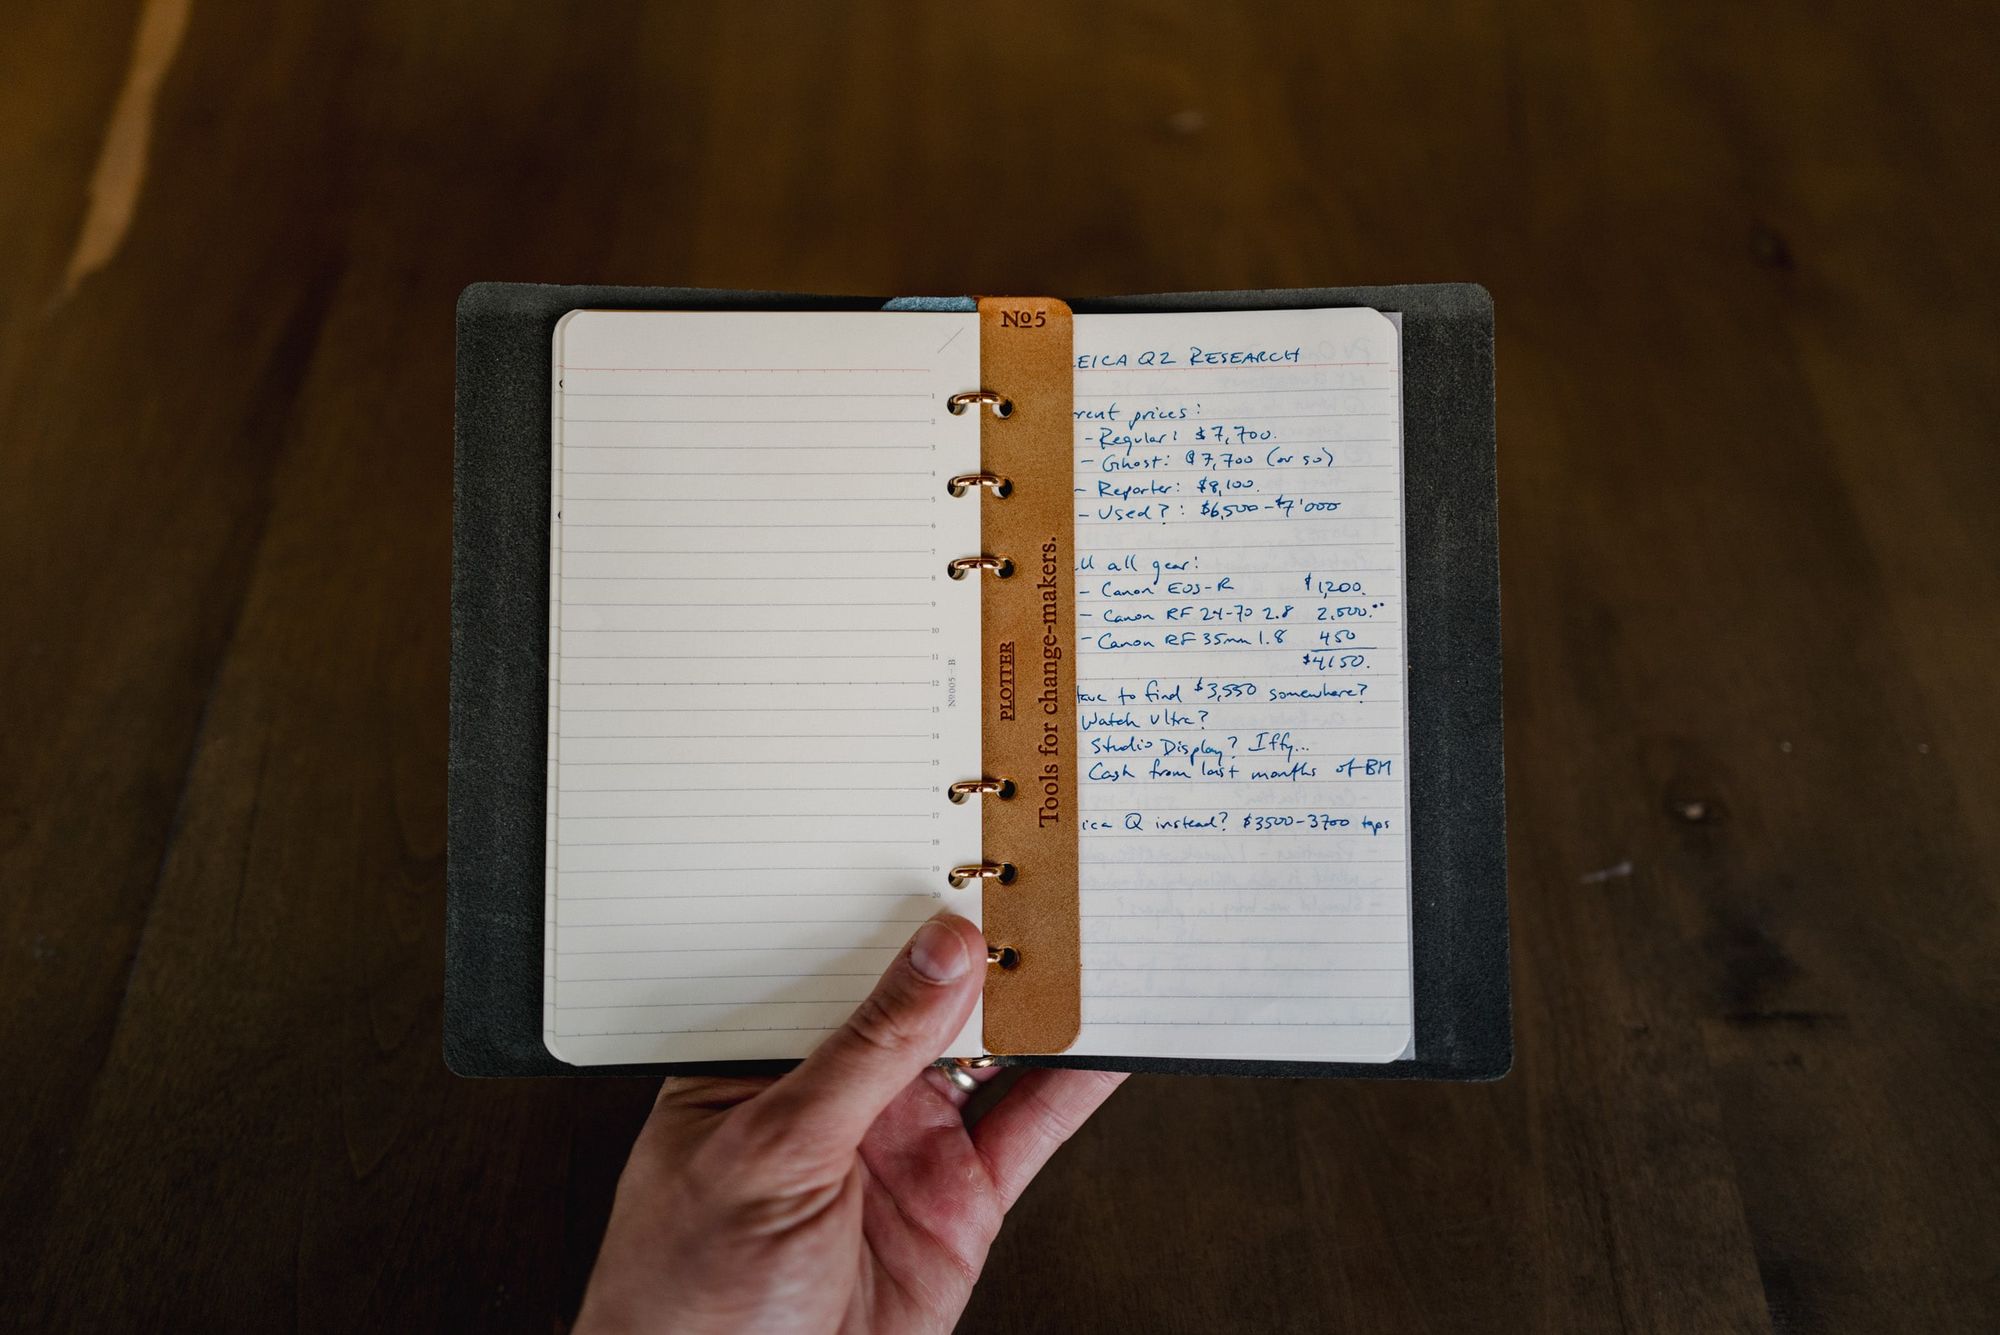 No5
PLOTTER
Tools for change-makers.
No005 - B
1
2
3
4
5
6
7
8
9
10
11
12
13
14
15
16
17
18
19
20
EICA Q2 RESEARCH
rent prices:
- Regular: $7,700.
- Ghost: $7,700 (or so)
- Reporter: $8,100.
- Used?: $6,500-$7'000
ll all gear:
- Canon EOS-R $1,200.
- Canon RF 24-70 2.8 2,500.
- Canon RF 35mm 1.8 450
$4150.
ave to find $3,550 somewhere?
Watch Ultra?
Studio Display? Iffy...
Cash from last months of BM
ica Q instead? $3500-3700 tops